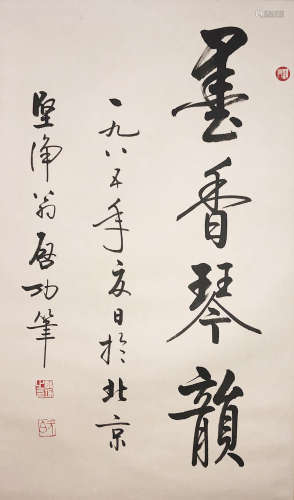 墨香琴韻
一九八五年夏日於北京
堅净翁啓功筆